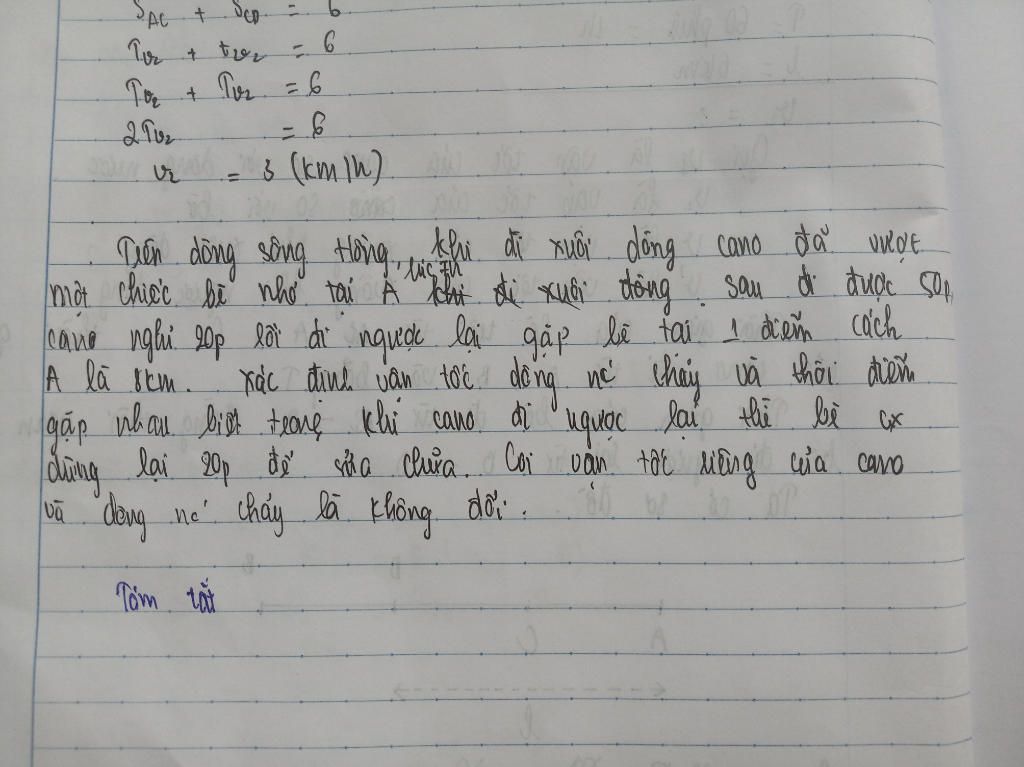 S_AC + S_CD = 6
Tv₂ + tv₂ = 6
Tv₂ + Tv₂ = 6
2Tv₂ = 6
v₂ = 3 (km/h)
Trên dòng sông Hồng, khi đi xuôi dòng cano đã vượt
một chiếc bè nhỏ tại A khi đi xuôi dòng. sau đi được 50p,
cano nghỉ 20p lồi đi ngược lại gặp bè tại 1 điểm cách
A là 8km. xác định vận tốc dòng nc' chảy và thời điểm
gặp nhau biết trong khi cano đi ngược lại thì bè cx
dừng lại 20p để sửa chữa. Coi vận tốc riêng của cano
và dòng nc' chảy là không đổi.
Tóm tắt